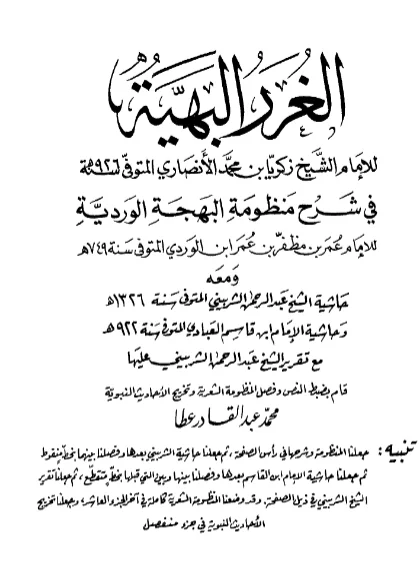 الغرر البهية
للإمام الشيخ زكريا بن محمد الأنصاري المتوفى سنة ٩٢٦ هـ
في شرح منظومة البهجة الوردية
للإمام عمر بن مظفر بن عمر ابن الوردي المتوفى سنة ٧٤٩ هـ
ومعه
حاشية الشيخ عبد الرحمن الشربيني المتوفى سنة ١٣٢٦ هـ
وحاشية الإمام ابن قاسم العبادي المتوفى سنة ٩٢٢ هـ
مع تقرير الشيخ عبد الرحمن الشربيني عليها
قام بضبط النص وفصل المنظومة الشعرية وتخريج الأحاديث النبوية
محمد عبد القادر عطا
تنبيه : جعلنا المنظومة وشرحها في رأس الصفحة، ثم جعلنا حاشية الشربيني بعدها وفصلنا بينها بخط منقوط
ثم جعلنا حاشية الإمام ابن القاسم بعدها وفصلنا بينها وبين التي قبلها بخط متقطع، ثم جعلنا تقرير
الشيخ الشربيني في ذيل الصفحة، وقد وضعنا المنظومة الشعرية كاملة في آخر الجزء العاشر، وجعلنا تخريج
الأحاديث النبوية في جزء منفصل